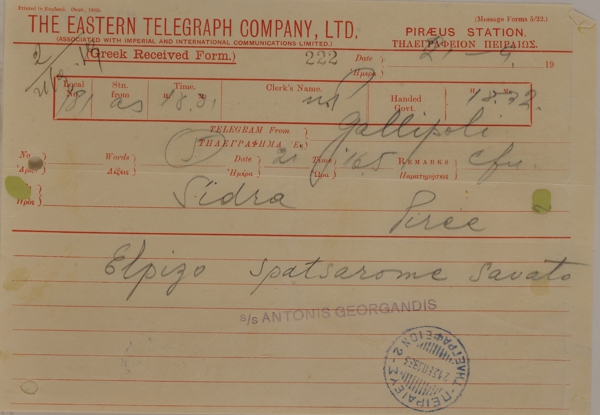 Printed in England. Sept., 1932.
THE EASTERN TELEGRAPH COMPANY, LTD.
(ASSOCIATED WITH IMPERIAL AND INTERNATIONAL COMMUNICATIONS LIMITED.)
(Greek Received Form.)
222
(Message Forms 5/22.)
PIRÆUS STATION.
ΤΗΛΕΓΡΑΦΕΙΟΝ ΠΕΙΡΑΙΩΣ.
Date
Ἡμέρα
21-9
19
Local No.
181
Stn. from
as
Time.
H. M.
18.31
Clerk's Name.
Handed Govt.
H. M.
18.32.
TELEGRAM From
ΤΗΛΕΓΡΑΦΗΜΑ Ἐξ
Gallipoli
No
Ἀριθ.
Words
Λέξεις
5
Date
Ἡμέρα
21
Time
Ὥρα
165
REMARKS
Παρατηρήσεις
cfu.
To
Πρὸς
Sidra Piree
Elpizo spatsarome savato
s/s ANTONIS GEORGANDIS
ΤΗΛΕΓΡΑΦΕΙΟΝ 2 - ΠΕΙΡΑΙΕΥΣ